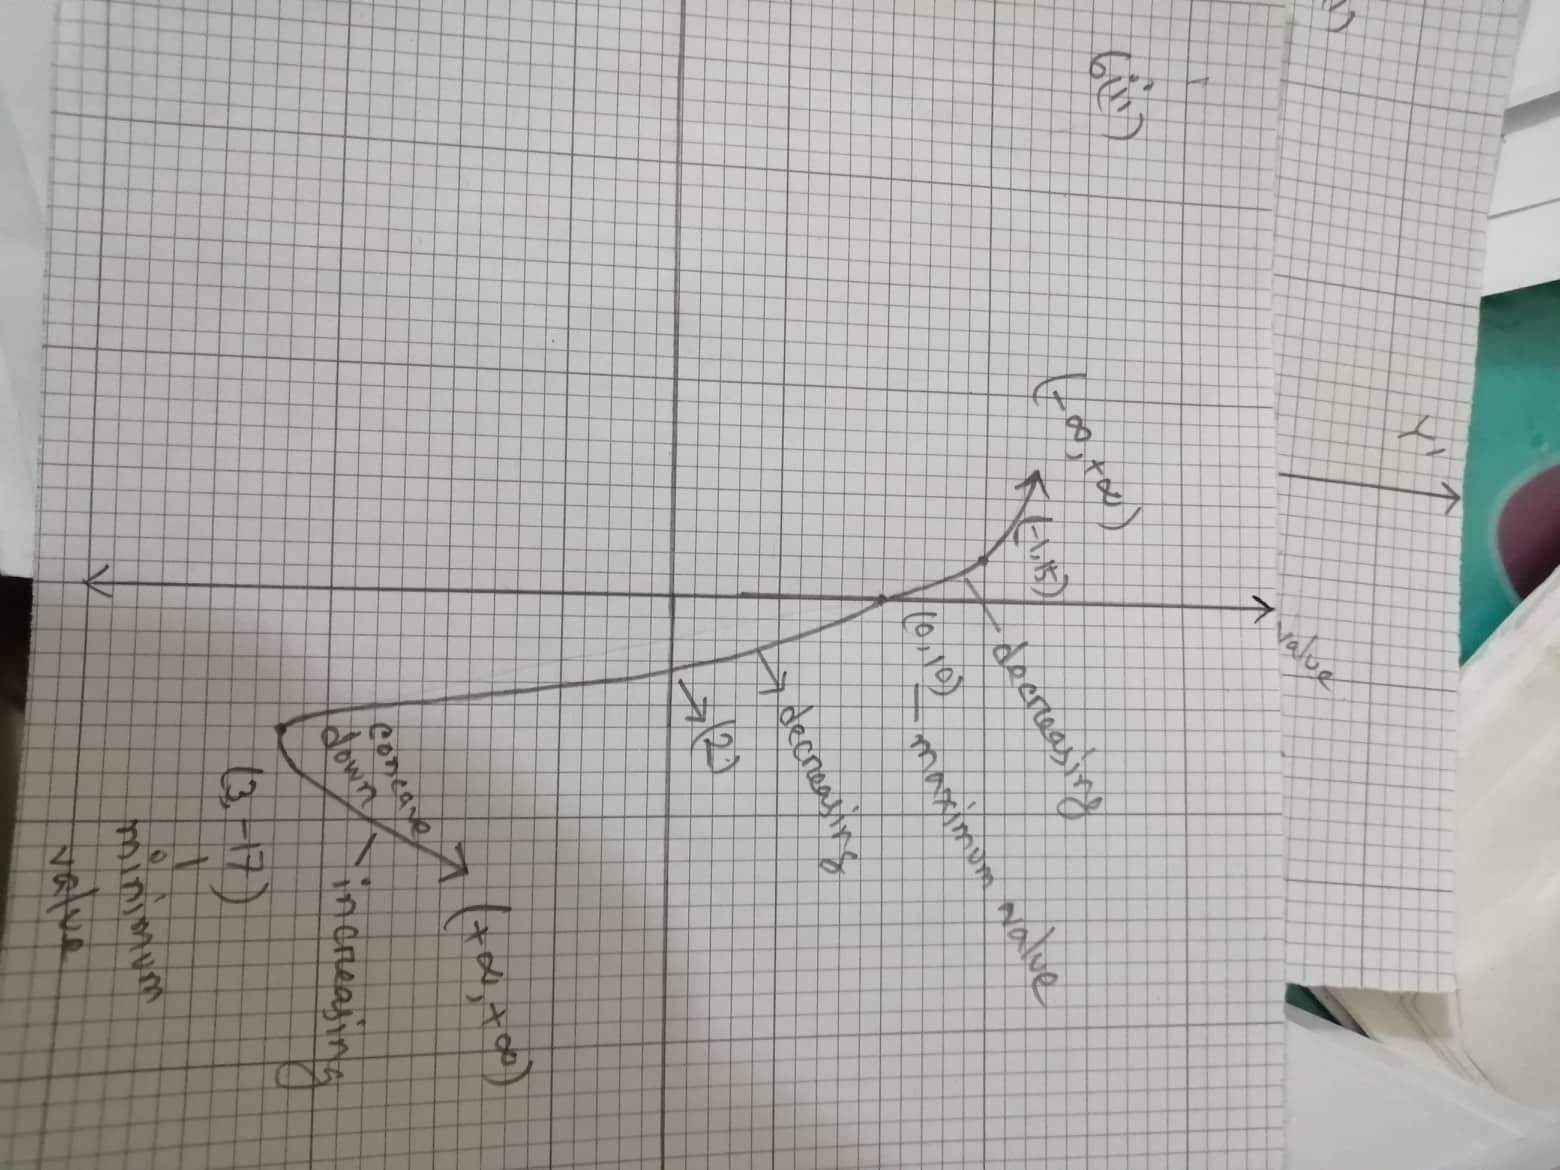 6(ii)
Y
value
(-∞,+∞)
(-1,15)
decreasing
(0,10) — maximum value
decreasing
(2)
(+∞,+∞)
concave
down
increasing
(3,-17)
minimum
value